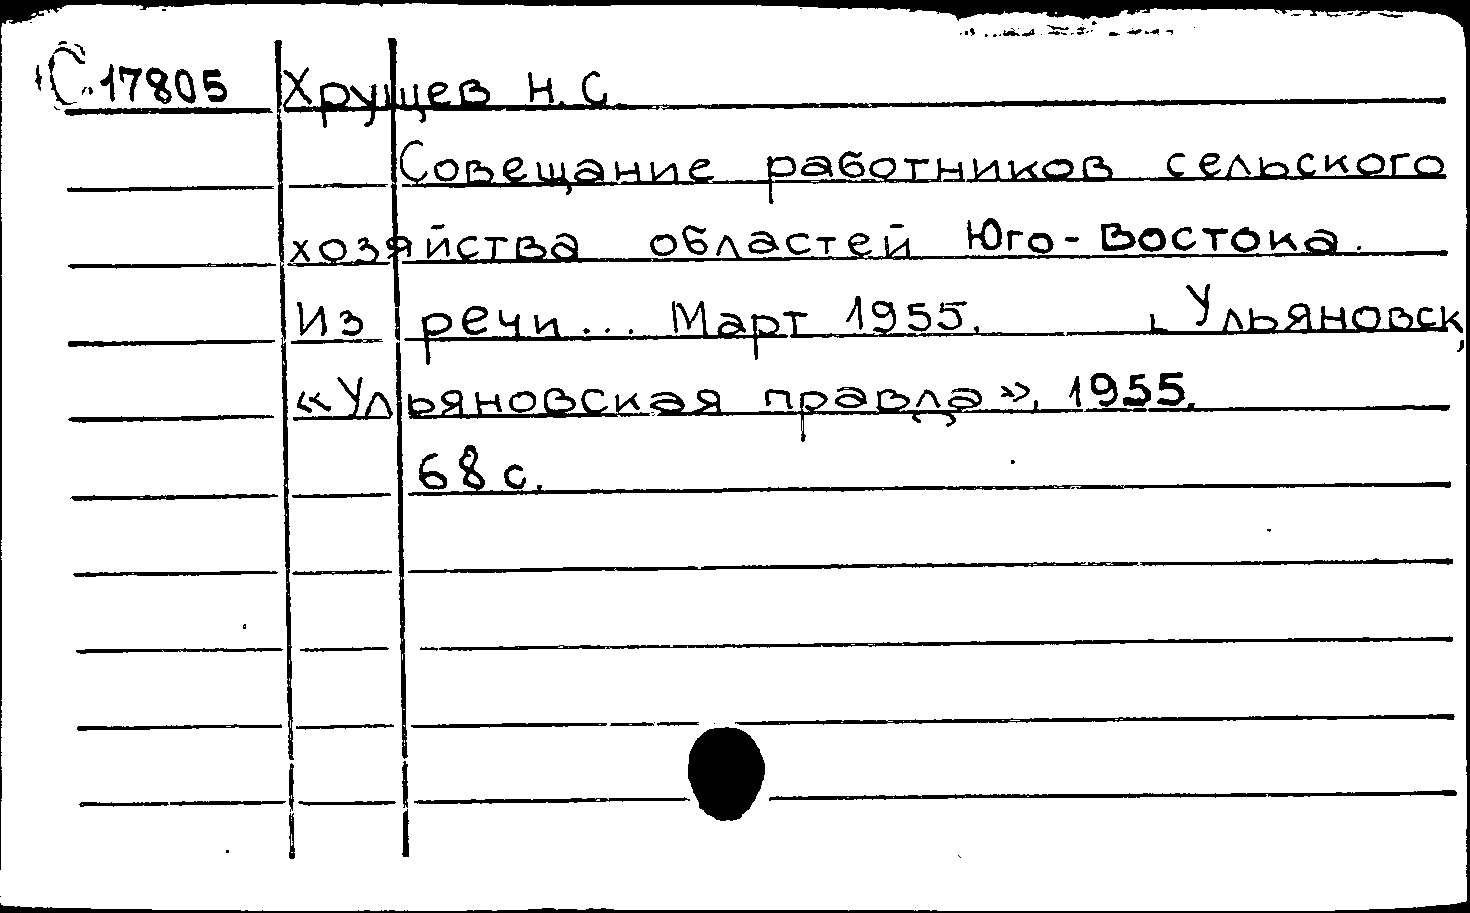 С.17805 Хрущев Н. С.
Совещание работников сельского
хозяйства областей Юго-Востока.
Из речи... Март 1955. Ульяновск,
«Ульяновская правда», 1955.
68 с.